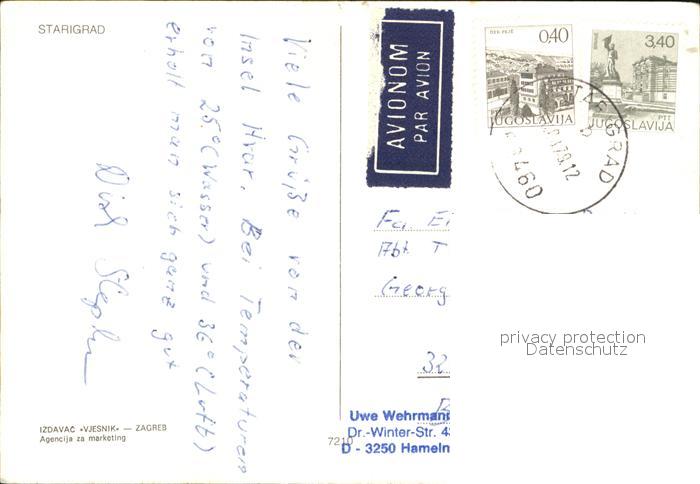 STARIGRAD
Viele Grüße von der
Insel Hvar. Bei Temperaturen
von 25° (Wasser) und 36° (Luft)
erholt man sich ganz gut
IZDAVAČ »VJESNIK« — ZAGREB
Agencija za marketing
7210
AVIONOM
PAR AVION
0,40
JUGOSLAVIJA
3,40
PTT
JUGOSLAVIJA
STARIGRAD
Fa. Ei
Abt. T
Georg
32
privacy protection
Datenschutz
Uwe Wehrmann
Dr.-Winter-Str. 4
D - 3250 Hameln